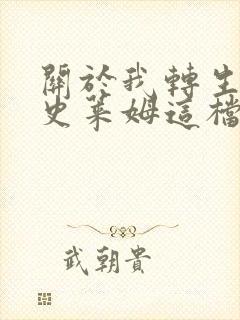 關於我轉生
史萊姆這檔
武朝貴